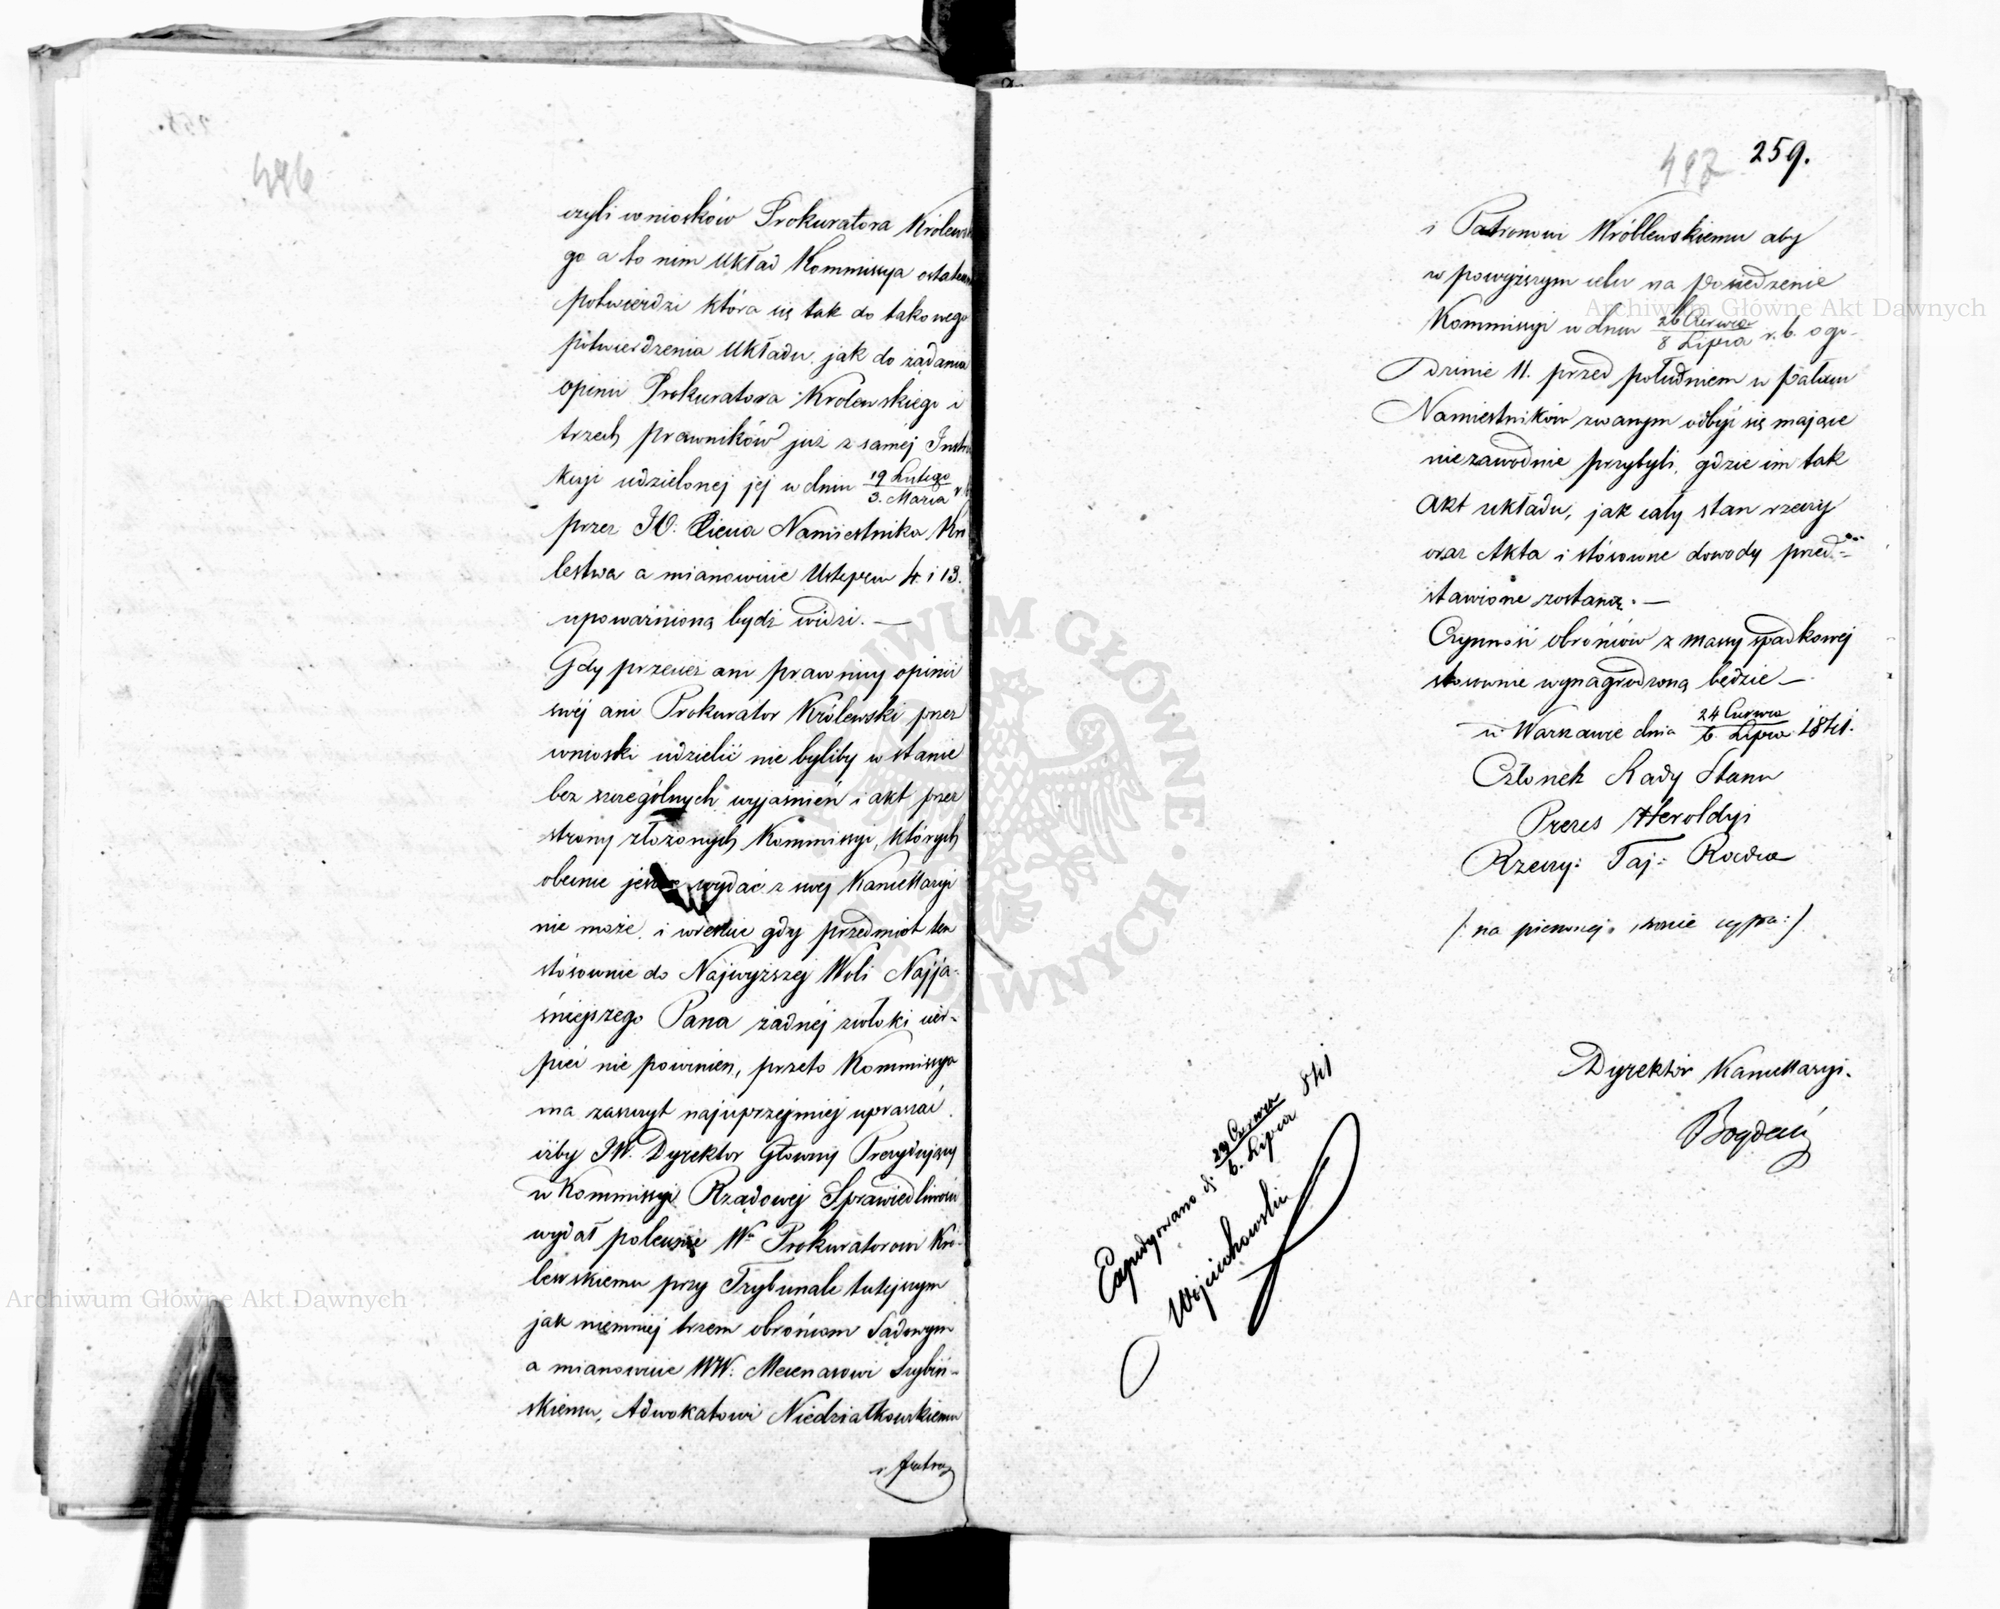 496
czyli wniosków Prokuratora Królewskie
go a to nim Układ Kommissya ostatecznie
potwierdzi która się tak do takowego
potwierdzenia Układu, jak do żądania
opinii Prokuratora Królewskiego i
trzech prawników już z samej Instru
kcyi udzielonej jej w dniu 19 Lutego / 3. Marca r. b.
przez JO: Xięcia Namiestnika Kró
lestwa a mianowicie Ustępem 4. i 13.
upoważnioną bydź widzi. —
Gdy przecież ani prawnicy opinii
swej ani Prokurator Królewski przez
wnioski udzielić nie byliby w stanie
bez szczególnych wyjaśnień i akt przez
strony złożonych Kommissyi, których
obecnie jeszcze wydać z swej Kancellaryi
nie może, i wreszcie gdy przedmiot ten
stósownie do Najwyższej Woli Najja-
śniejszego Pana żadnej zwłoki cier-
pieć nie powinien, przeto Kommissya
ma zaszczyt najuprzejmiej upraszać
iżby JW. Dyrektor Główny Prezydujący
w Kommissyi Rządowej Sprawiedliwości
wydał polecenie Wu Prokuratorowi Kró-
lewskiemu przy Trybunale tutejszym
jak niemniej trzem obrońcom Sądowym
a mianowicie WW. Mecenasowi Szybiń-
skiemu, Adwokatowi Niedziałkowskiemu
i Patron
497 259.
i Patronowi Wróblewskiemu aby
w powyższym celu na posiedzenie
Kommissyi w dniu 26 Czerwca / 8 Lipca r. b. o go-
dzinie 11. przed południem w pałacu
Namiestników zwanym odbyć się mające
niezawodnie przybyli, gdzie im tak
Akt układu, jak cały stan rzeczy
oraz Akta i stósowne dowody przed-
stawione zostaną. —
Czynność obrońców z massy spadkowej
stosownie wynagrodzoną będzie —
w Warszawie dnia 24 Czerwca / 6. Lipca 1841.
Członek Rady Stanu
Prezes Heroldyi
Rzeczy: Taj: Radca
/: na pierwszej stronie :/
Dyrektor Kancellaryi.
Expedyowano d. 24 Czerwca / 6. Lipca 841
Wojciechowski
Archiwum Główne Akt Dawnych
Archiwum Główne Akt Dawnych
ARCHIWUM GŁÓWNE AKT DAWNYCH